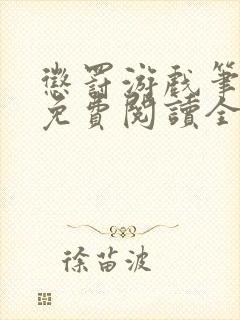 懲罰游戲筆
免費閱讀全
徐苗波